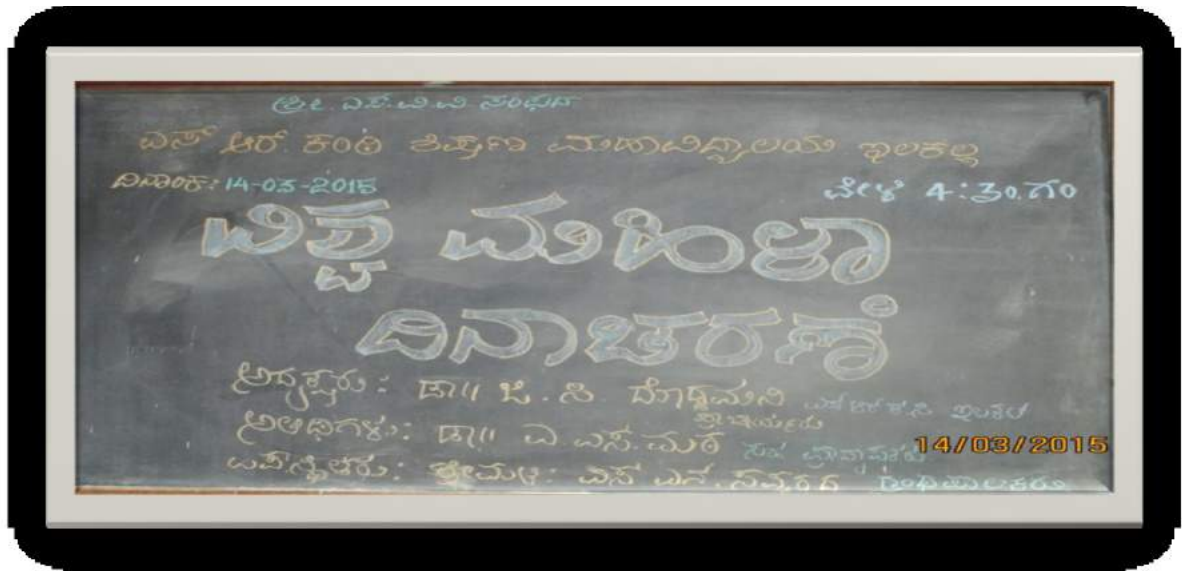 ಶ್ರೀ. ಎಸ್.ವಿ.ವಿ ಸಂಘದ
ಎಸ್ ಆರ್. ಕಂಠಿ ಶಿಕ್ಷಣ ಮಹಾವಿದ್ಯಾಲಯ ಇಲಕಲ್ಲ
ದಿನಾಂಕ: 14-03-2015 ವೇಳೆ 4:30.ಗಂ
ವಿಶ್ವ ಮಹಿಳಾ
ದಿನಾಚರಣೆ
ಅಧ್ಯಕ್ಷರು: ಡಾ|| ಜಿ. ಸಿ. ದೊಡ್ಡಮನಿ
ಪ್ರಾಚಾರ್ಯರು
ಅತಿಥಿಗಳು: ಡಾ|| ಎ. ಎಸ್. ಮಠ ಸಹ ಪ್ರಾಧ್ಯಾಪಕರು
ಉಪಸ್ಥಿತರು: ಶ್ರೀಮತಿ: ಎಸ್ ಎನ್. ಗ್ರಂಥಪಾಲಕರು
14/03/2015